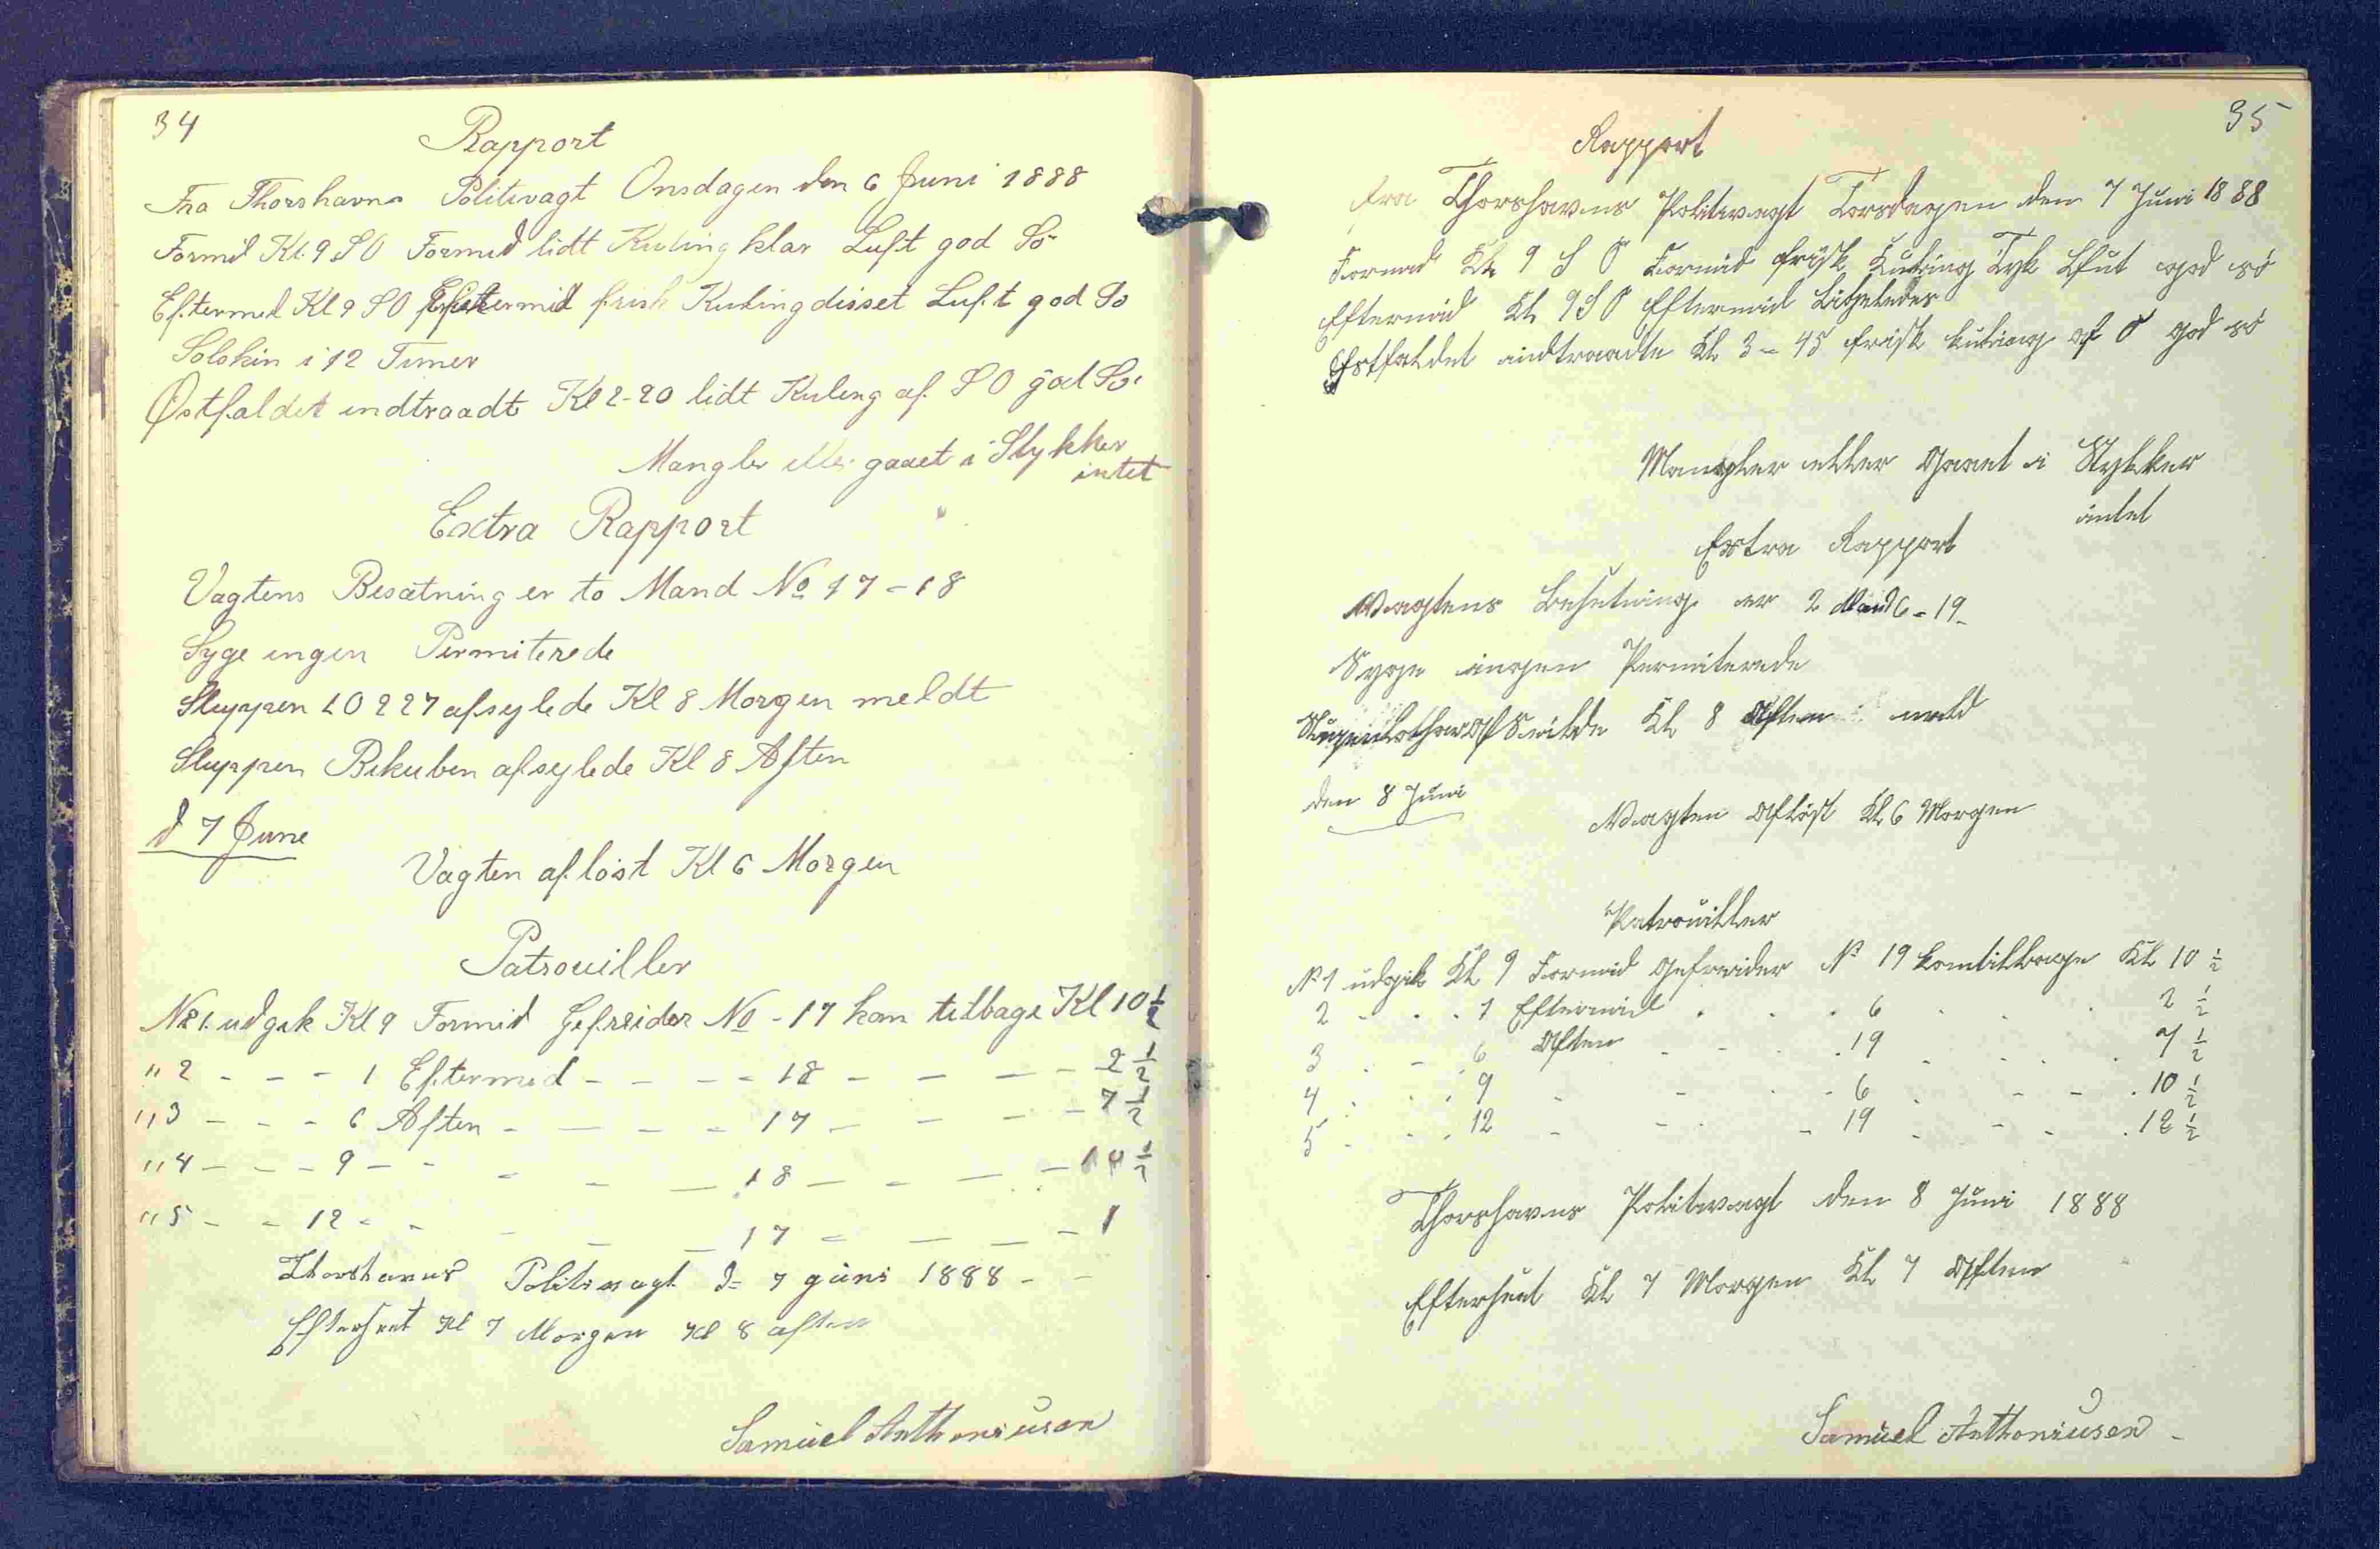 34
Rapport
Fra Thorshavns Politivagt Onsdagen den 6 Juni 1888
Formd Kl. 9 SO Formid lidt Kuling klar Luft god Sö
Eftermd Kl 9 SO Eftermid frisk Kuling disset Luft god So
Solskin i 12 Timer
Østfaldet indtraadt Kl 2-20 lidt Kuling af SO god Sö
Mangler eller gaaet i Stykker
intet
Extra Rapport
Vagtens Besætning er to Mand No 17-18
Syge ingen Permiterede
Sluppen LO 227 afsejlede Kl 8 Morgen meldt
Sluppen Bikuben afsejlede Kl 8 Aften
d 7 June
Vagten aflöst Kl 6 Morgen
Patrouiller
No 1. udgik Kl 9 Formid Gefreider No - 17 kom tilbage Kl 10 1/2
" 2 - - - 1 Eftermid - - - - 18 - - - - 2 1/2
" 3 - - - 6 Aften - - - - 17 - - - - 7 1/2
" 4 - - - 9 - - - - - 18 - - - - 10 1/2
" 5 - - 12 - - - - - 17 - - - - 1
Thorshavns Politivagt d= 7 júni 1888 -
Efterseet Kl 7 Morgen Kl 8 aften
Samúel Anthoniusen
35
Rapport
fra Thorshavns Politivagt Torsdagen den 7 Juni 1888
Formid Kl 9 S O Formid frisk Kuling Tyk Lfut god sö
Eftermid Kl 9 S O Eftermid Ligeledes
Østfaldet indtraadte Kl 3-45 frisk kuling af O god sö
Mangler eller Gaaet i Stykker
intet
Extra Rapport
Vagtens Besetning er 2 Mand 6-19-
Syge ingen Permiterede
Kl 8 Aften meld
den 8 Juni
Vagten Aflöst Kl 6 Morgen
Patrouiller
No 1 udgik Kl 9 Formid Gefreider No 19 komtilbage Kl 10 1/2
2 - . . 1 Eftermid . . . 6 . . . 2 1/2
3 . - . 6 Aften - - . 19 . . . 7 1/2
4 . . . 9 - - . 6 . - - . 10 1/2
5 - . . 12 - - - 19 . - - . 12 1/2
Thorshavns Politivagt den 8 Juni 1888
Efterseet Kl 7 Morgen Kl 7 Aften
Samúel Anthoniusen -